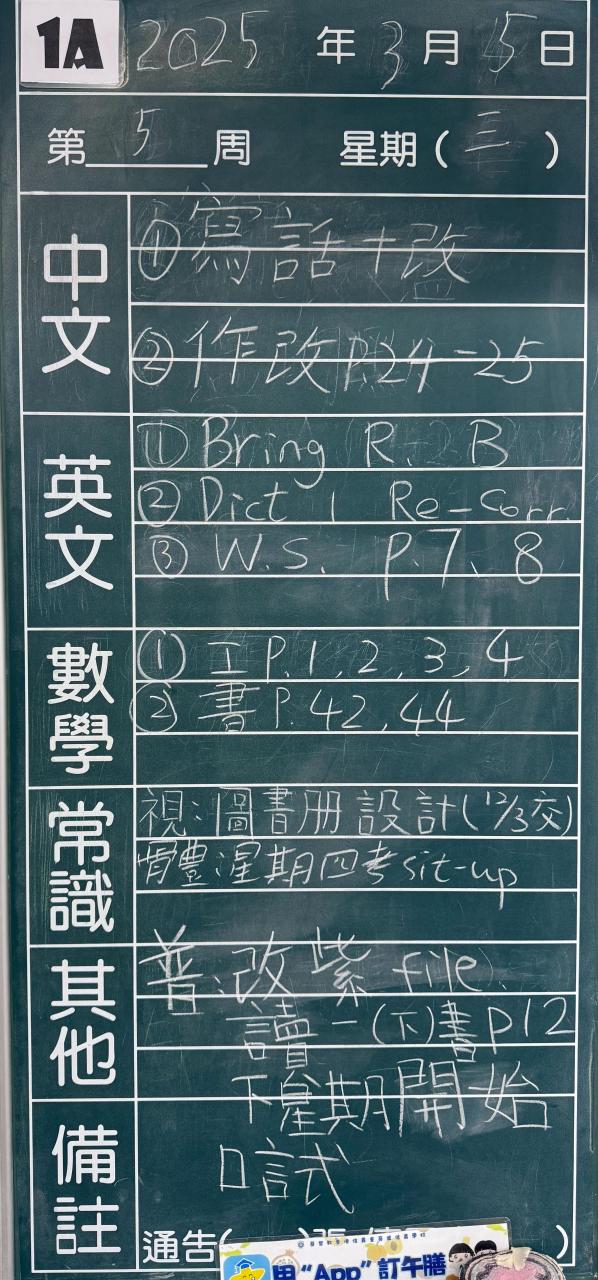 1A 2025 年 3 月 5 日
第 5 周 星期(三)
中文
①寫話+改
②作改 P.24-25
英文
① Bring R. B
② Dict 1 Re-Corr.
③ W.S. P.7、8
數學
① 工 P.1, 2, 3, 4
② 書 P.42, 44
常識
視:圖書册設計(12/3交)
體 星期四考 sit-up
其他
普:改紫 file
讀一(下)書 p12
下星期開始
備註
口試
通告( )張
用 “App” 訂午膳